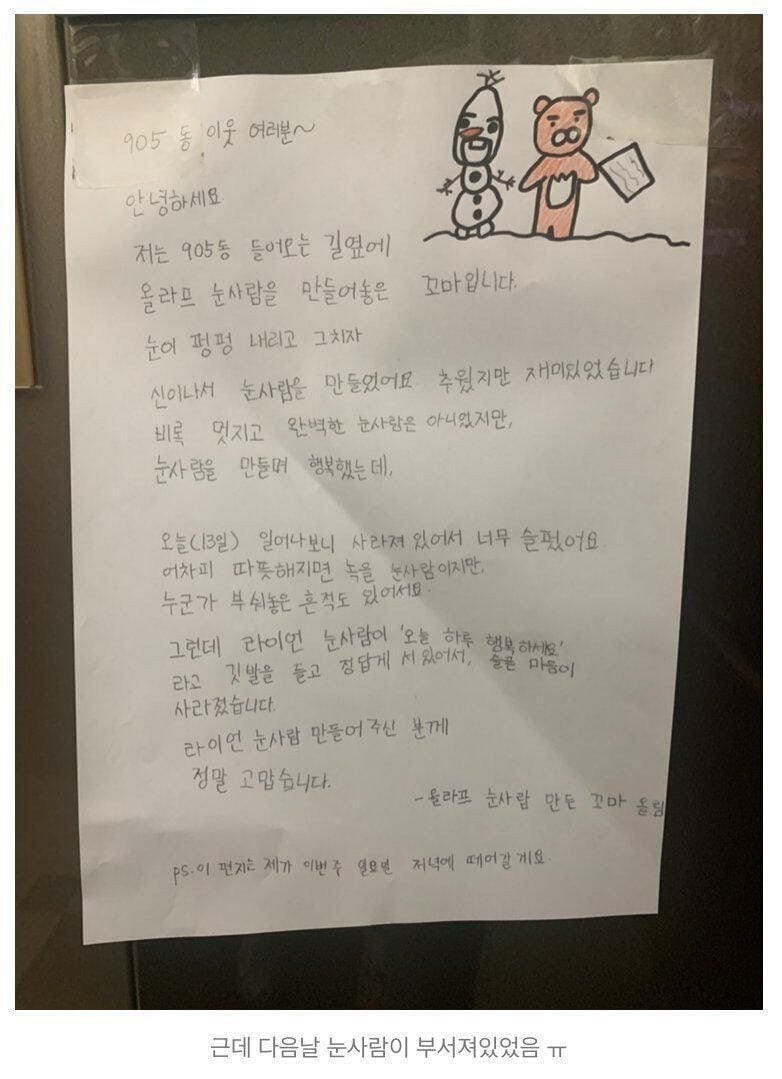 905 동 이웃 여러분~
안녕하세요
저는 905동 들어오는 길옆에
올라프 눈사람을 만들어놓은 꼬마입니다.
눈이 펑펑 내리고 그치자
신이나서 눈사람을 만들었어요 추웠지만 재미있었습니다
비록 멋지고 완벽한 눈사람은 아니었지만,
눈사람을 만들며 행복했는데,
오늘(13일) 일어나보니 사라져 있어서 너무 슬펐어요.
어차피 따뜻해지면 녹을 눈사람이지만,
누군가 부숴놓은 흔적도 있어서요.
그런데 라이언 눈사람이 '오늘 하루 행복하세요'
라고 깃발을 들고 정답게 서 있어서, 슬픈 마음이
사라졌습니다.
라이언 눈사람 만들어 주신 분께
정말 고맙습니다.
-올라프 눈사람 만든 꼬마 올림
PS. 이 편지는 제가 이번주 일요일 저녁에 떼어갈게요.
근데 다음날 눈사람이 부서져있었음 ㅠ